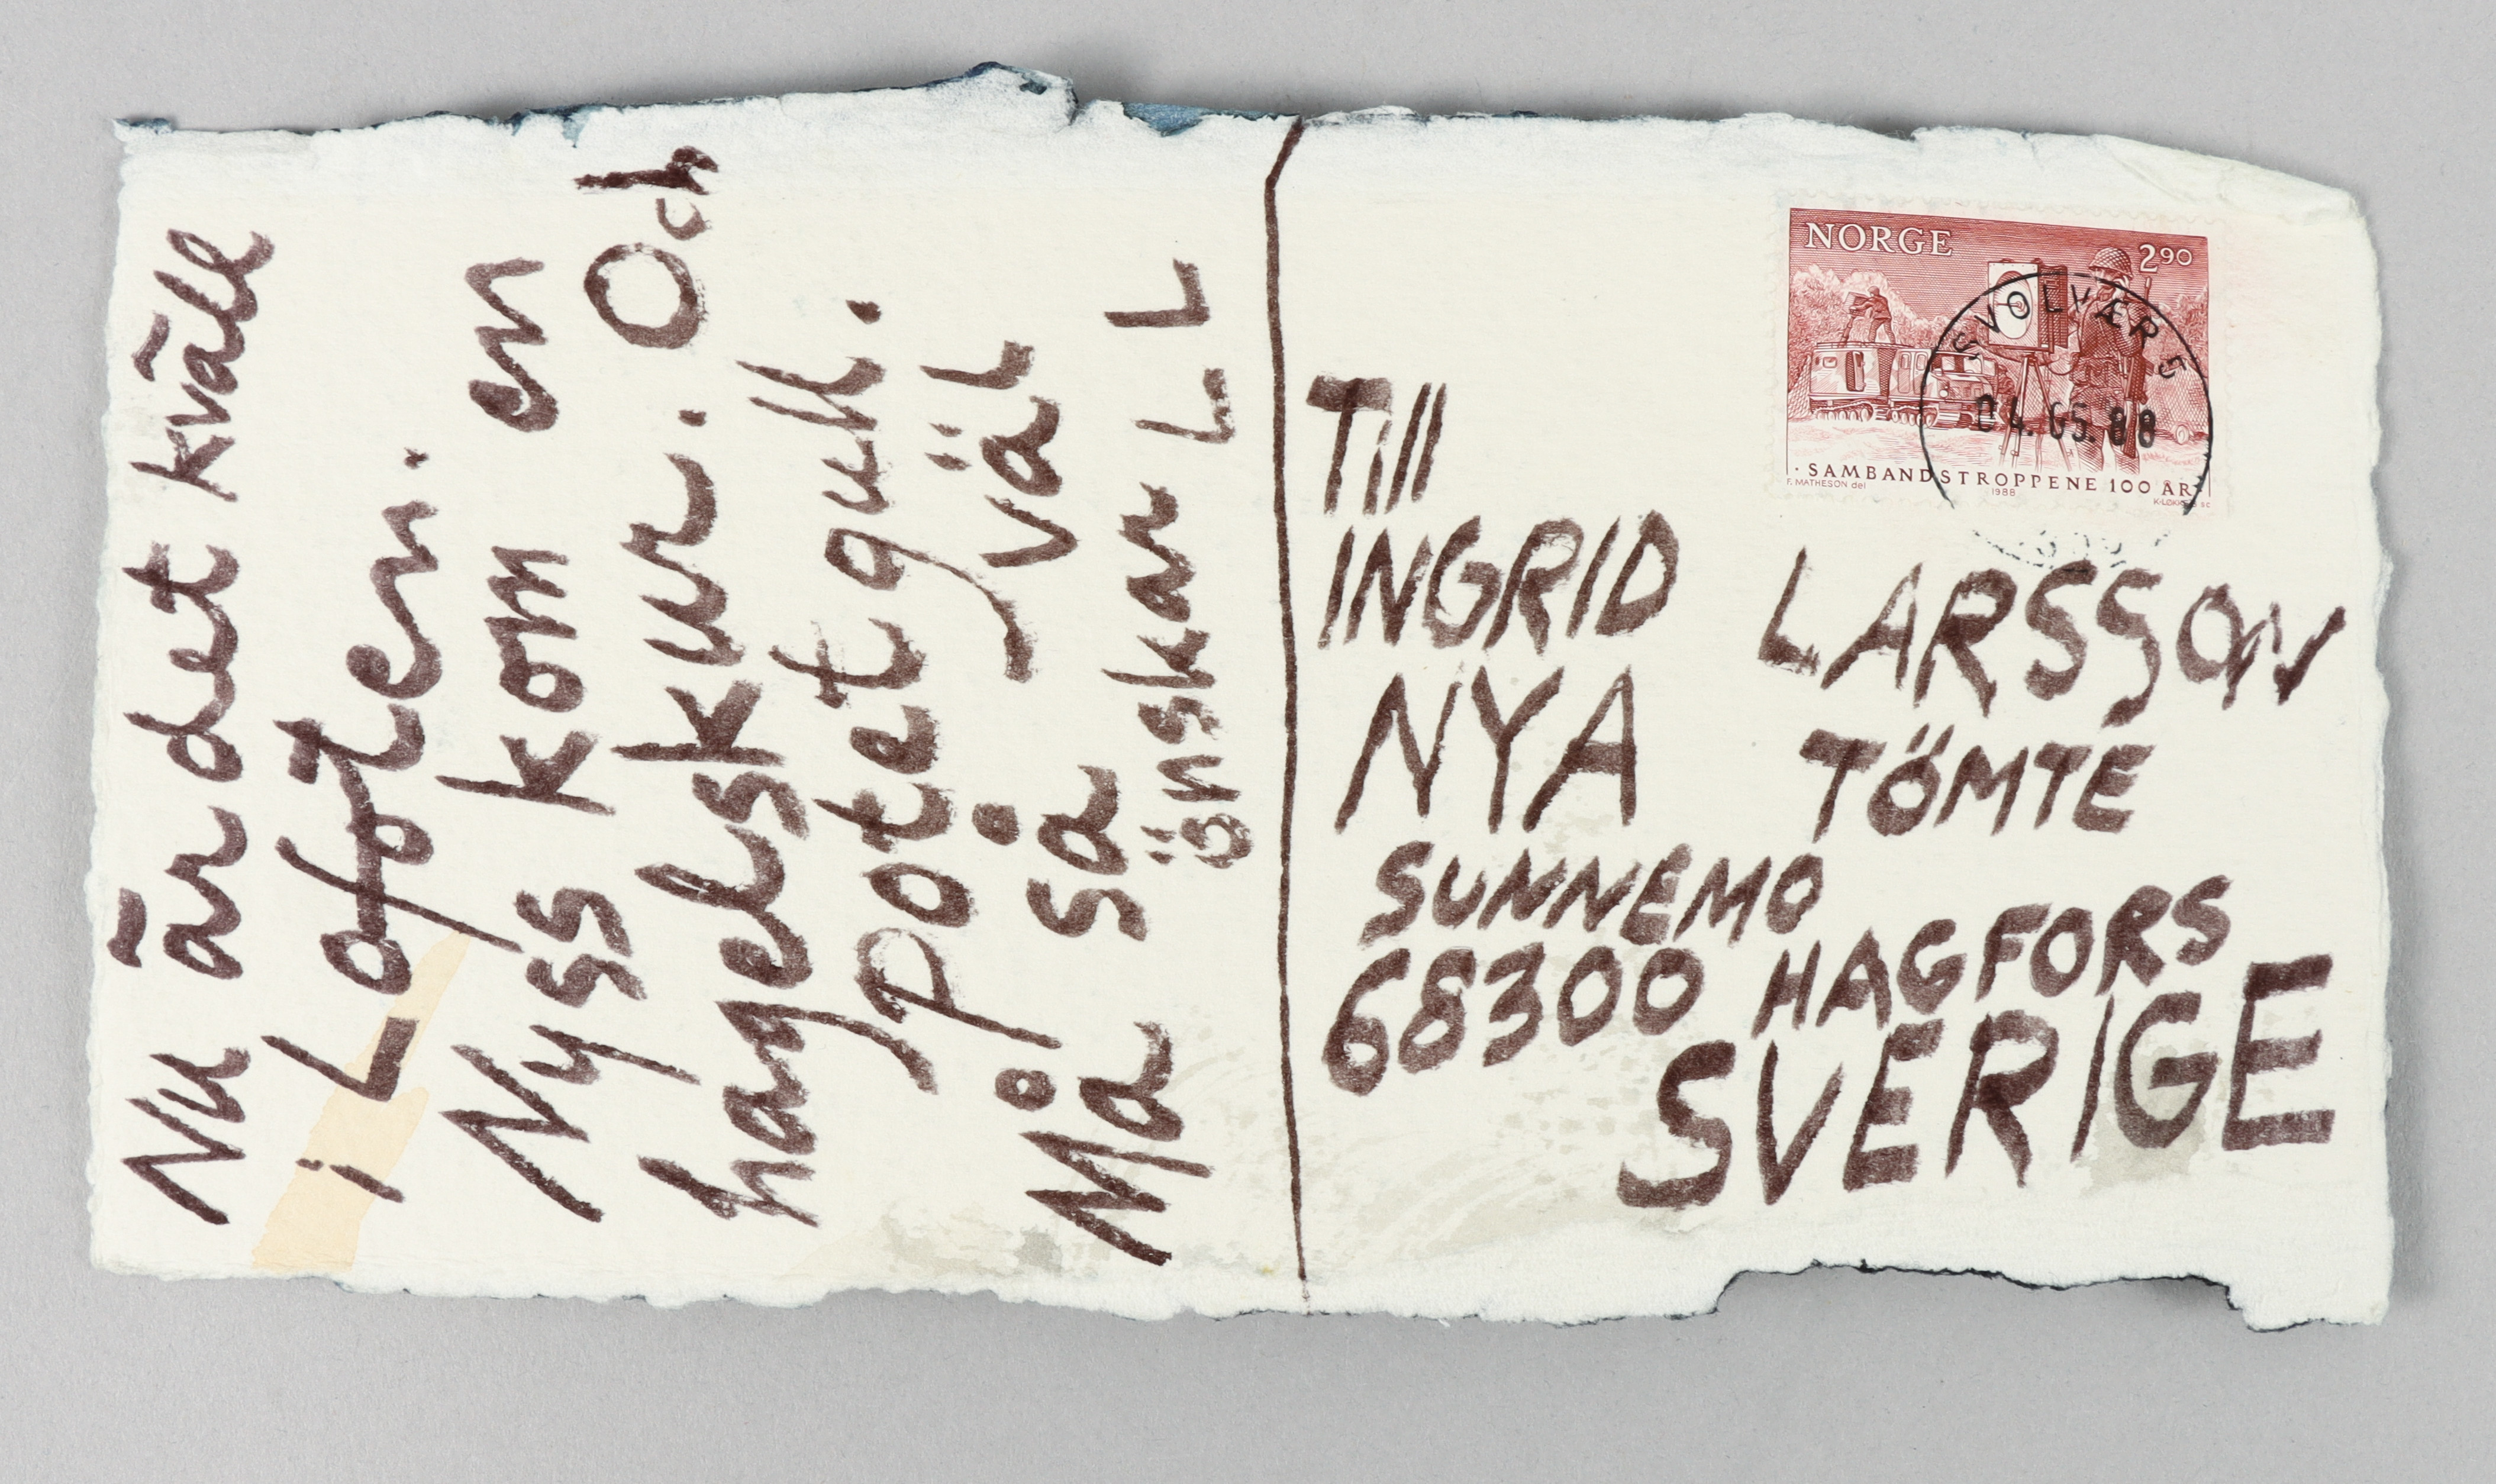 Nu är det kväll
i Lofoten.
Nyss kom en
hagelskur. Och
potetgull.
Må så väl
önskar LL
NORGE 290
SVOLVÆR 5
04.05.88
SAMBANDSTROPPENE 100 ÅR
F. MATHESON del 1988
Till
INGRID LARSSON
NYA TÖMTE
SUNNEMO
68300 HAGFORS
SVERIGE